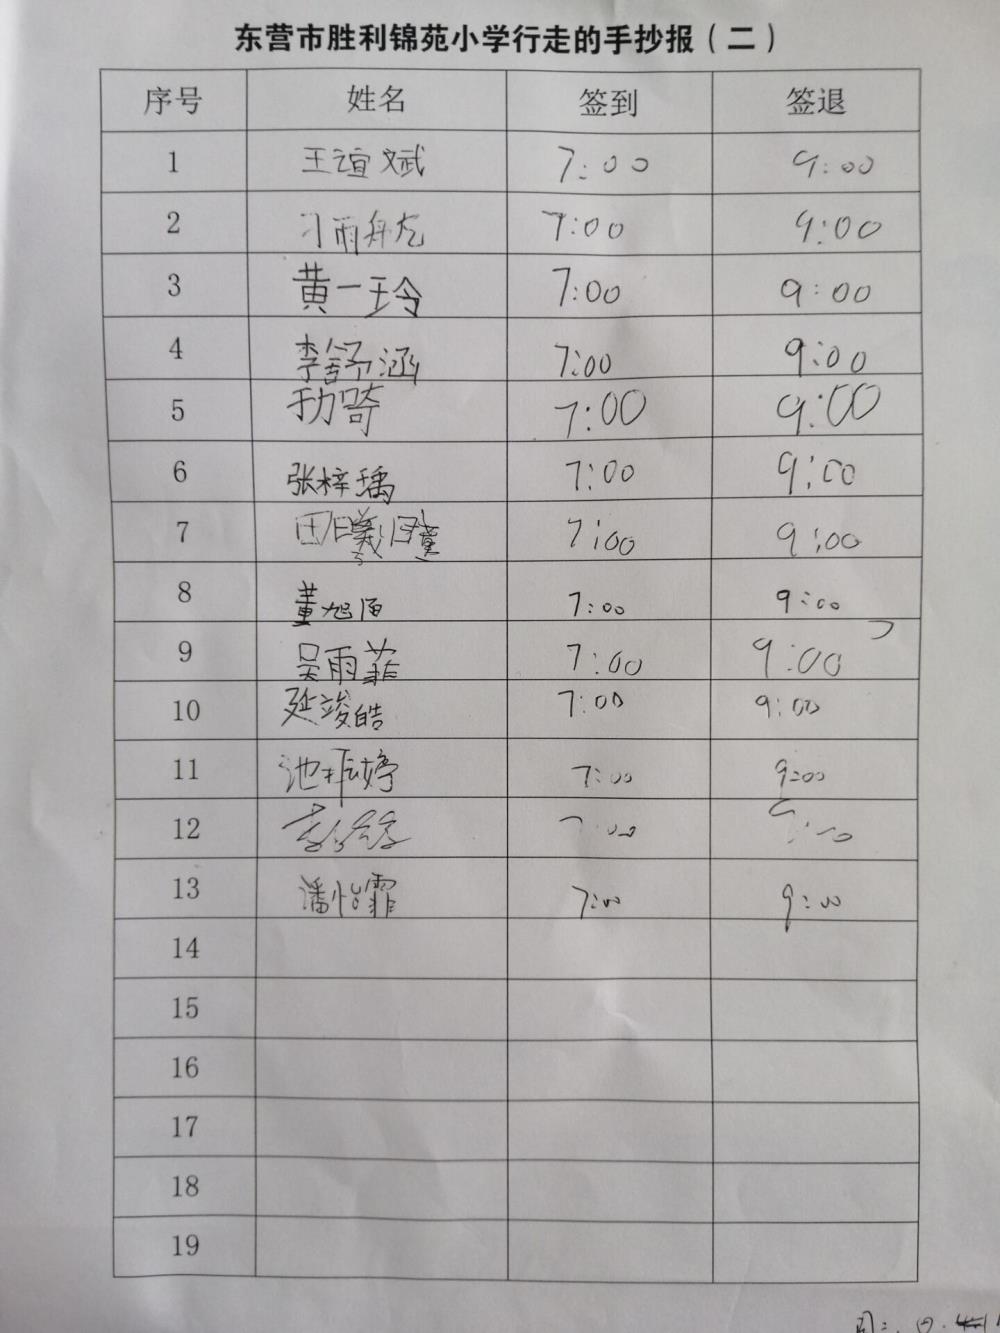 东营市胜利锦苑小学行走的手抄报（二）
序号 姓名 签到 签退
1 王谊斌 7:00 9:00
2 刁雨舟 7:00 9:00
3 黄一玲 7:00 9:00
4 李舒涵 7:00 9:00
5 7:00 9:00
6 张梓瑀 7:00 9:00
7 田曦瞳 7:00 9:00
8 董旭 7:00 9:00
9 吴雨菲 7:00 9:00
10 延竣皓 7:00 9:00
11 池婷 7:00 9:00
12 7:00 9:00
13 潘怡霏 7:00 9:00
14
15
16
17
18
19